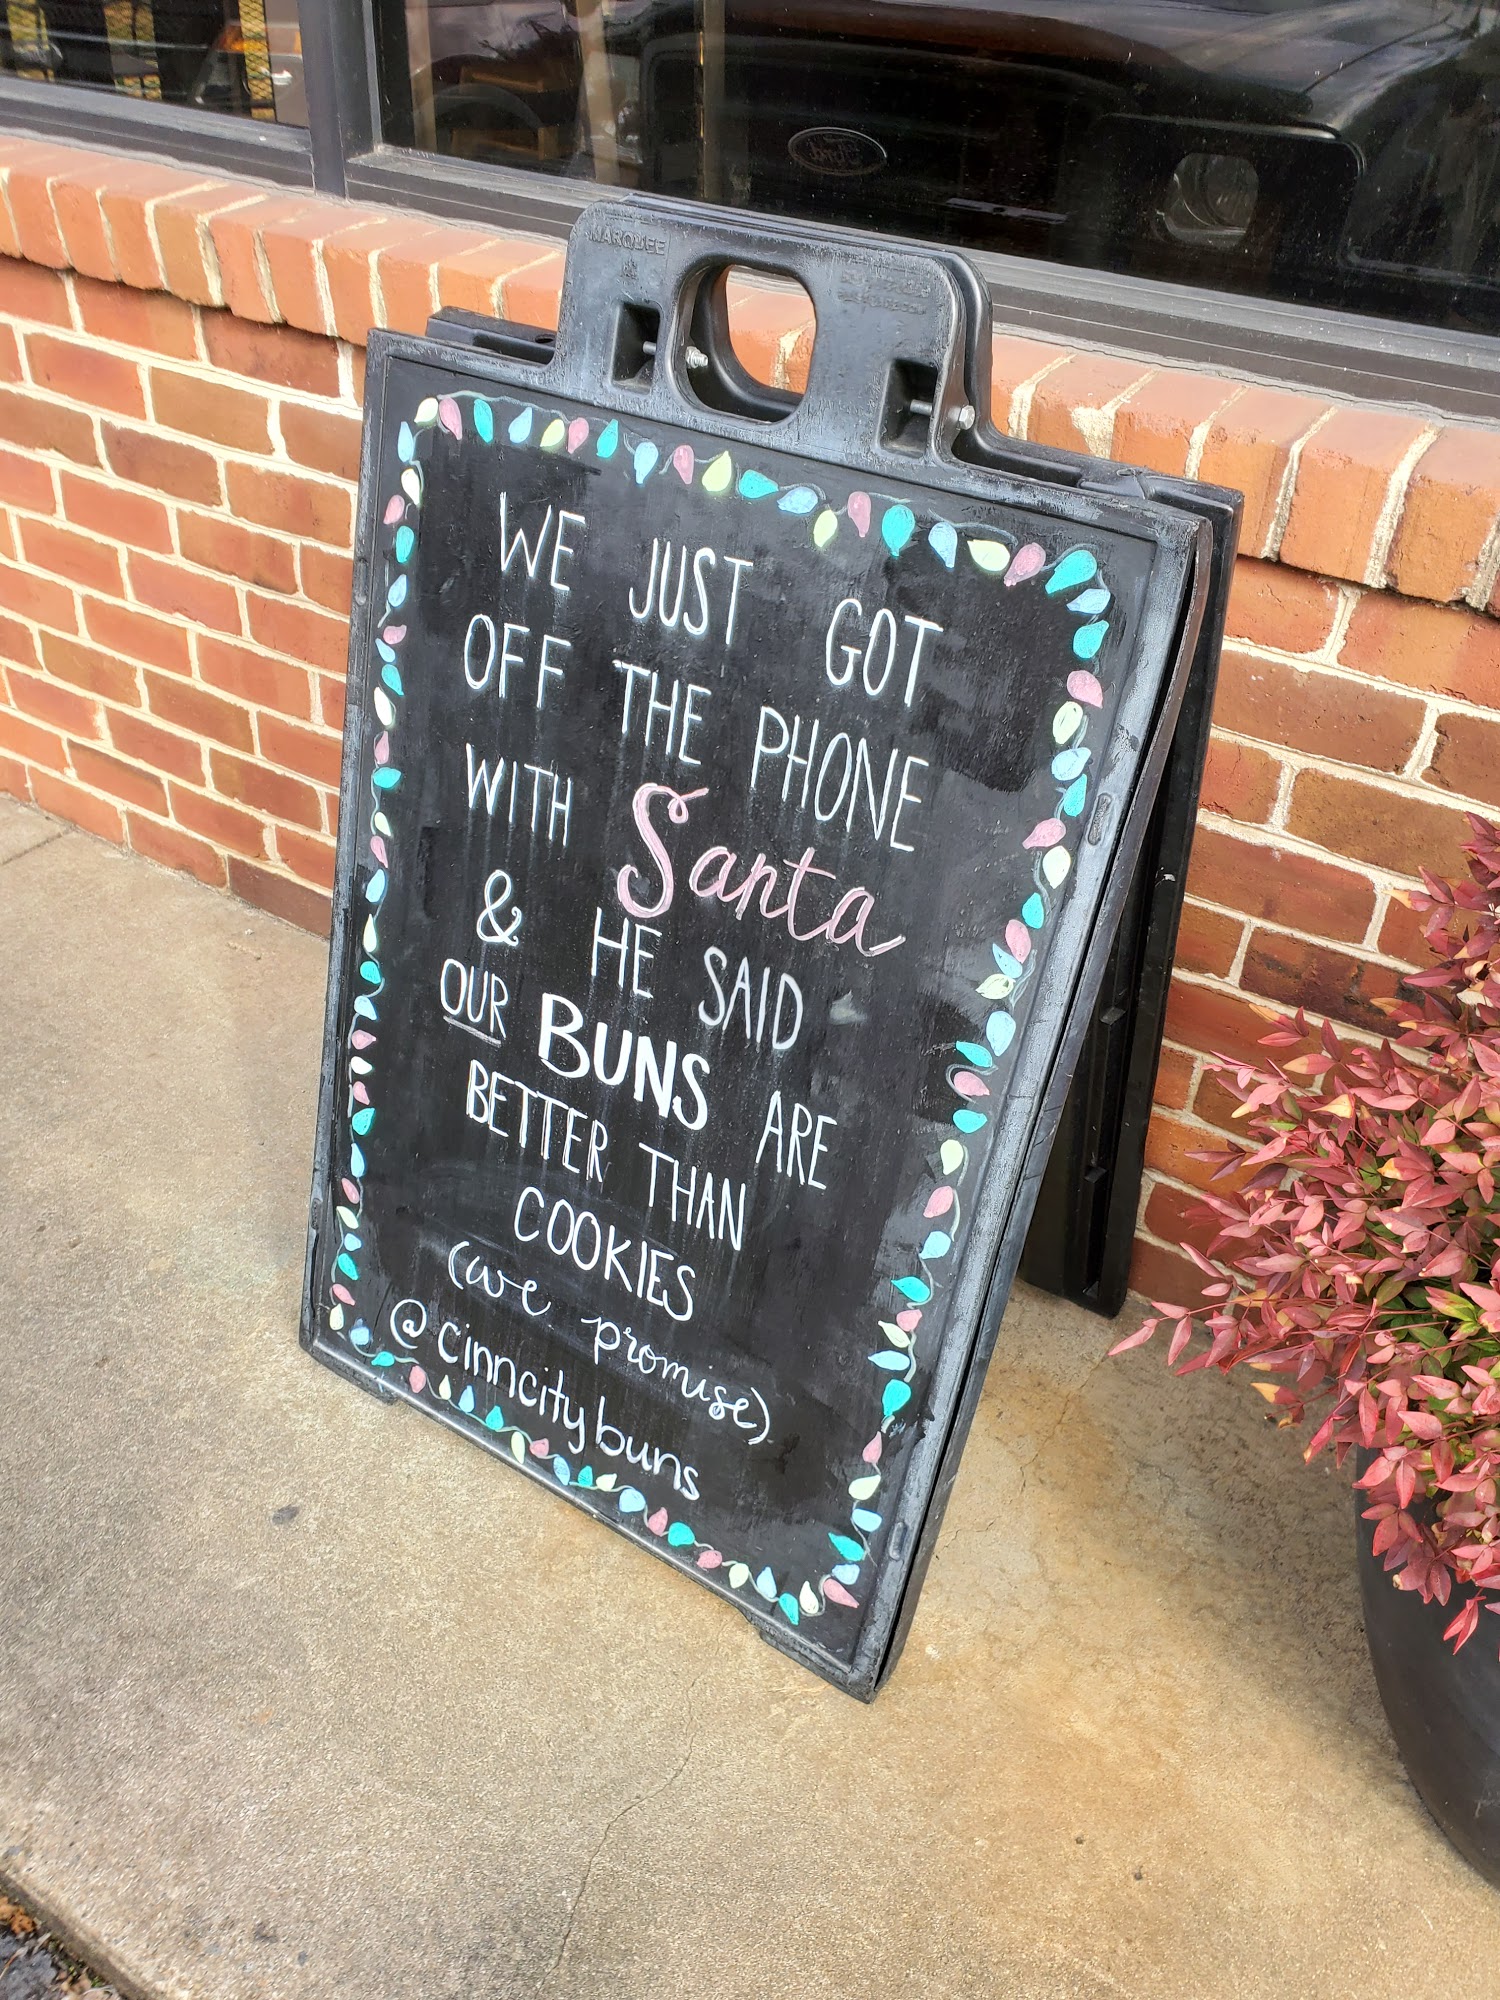 Ford
MARQUEE
WE JUST GOT
OFF THE PHONE
WITH Santa
& HE SAID
OUR BUNS ARE
BETTER THAN
COOKIES
(we promise)
@cinncitybuns